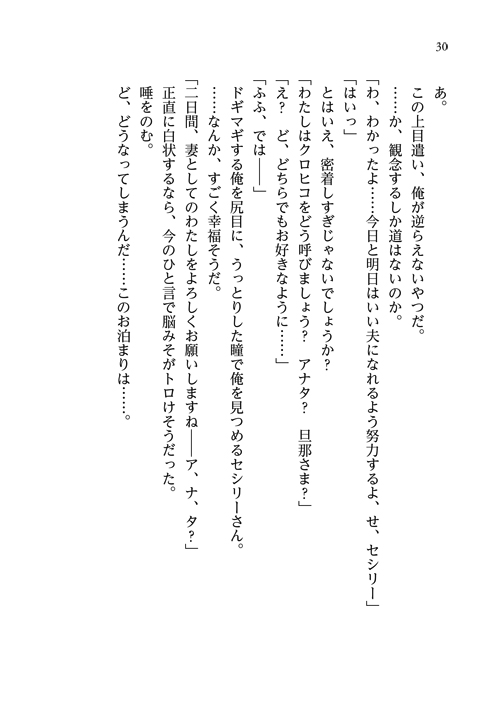 30
あ。
この上目遣い、俺が逆らえないやつだ。
……か、観念するしか道はないのか。
「わ、わかったよ……今日と明日はいい夫になれるよう努力するよ、せ、セシリー」
「はいっ」
とはいえ、密着しすぎじゃないでしょうか？
「わたしはクロヒコをどう呼びましょう？　アナタ？　旦那さま？」
「え？　ど、どちらでもお好きなように……」
「ふふ、では――」
ドギマギする俺を尻目に、うっとりした瞳で俺を見つめるセシリーさん。
……なんか、すごく幸福そうだ。
「二日間、妻としてのわたしをよろしくお願いしますね――ア、ナ、タ？」
正直に白状するなら、今のひと言で脳みそがトロけそうだった。
唾をのむ。
ど、どうなってしまうんだ……このお泊まりは……。